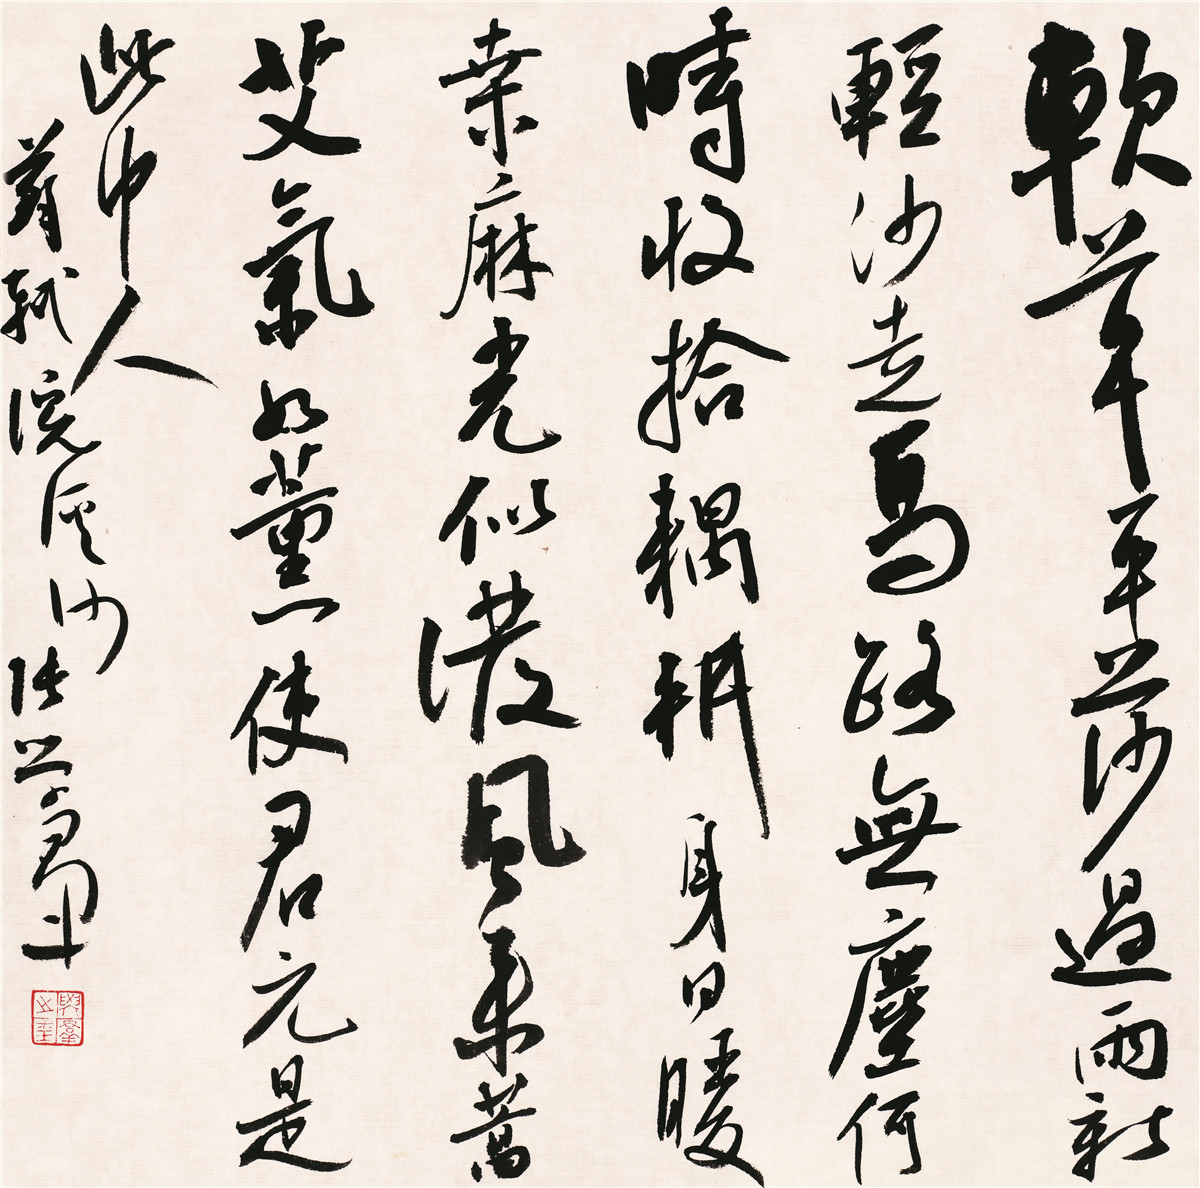 軟草平莎過雨新
輕沙走馬路無塵何
時收拾耦耕身日暖
桒麻光似潑風来蒿
艾氣如薰使君元是
此中人
蘇軾浣溪沙 張